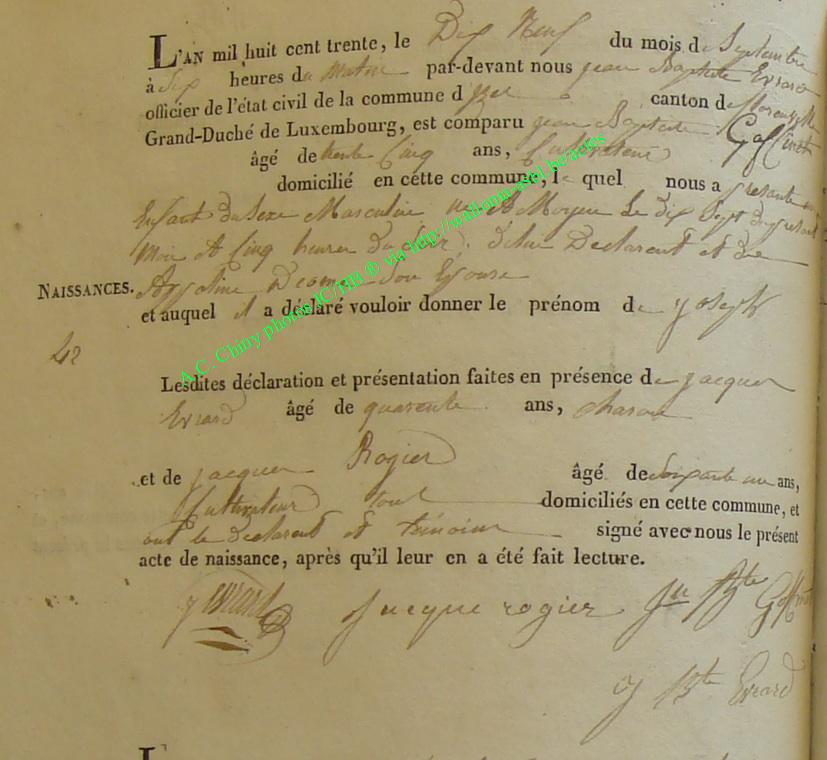 L'AN mil huit cent trente, le Dix Neuf du mois de Septembre
à Six heures du Matin par-devant nous jean Baptiste Evrard
officier de l'état civil de la commune d'izel canton de florenville
Grand-Duché de Luxembourg, est comparu jean Baptiste Goffinet
âgé de trente Cinq ans, Cultivateur
domicilié en cette commune, lequel nous a presenté un
Enfant du Sexe Masculin le dix Sept du present
Moi et Cinq heures du Soir, de lui Declarent et de
Appoline son Epouse
NAISSANCES.
et auquel il a déclaré vouloir donner le prénom de joseph
42
Lesdites déclaration et présentation faites en présence de jacques
Evrard âgé de quarente ans, charon
et de jacques Rogier âgé de Soixante un ans,
Cultivateur tout domiciliés en cette commune, et
ont le Declarent et temoins signé avec nous le présent
acte de naissance, après qu'il leur en a été fait lecture.
j evrard jacque rogier Jn Bte Goffinet
j Bte Evrard
A.C. Chiny photos JC/HB ® via http://wallonia-asbl.be/actes
L